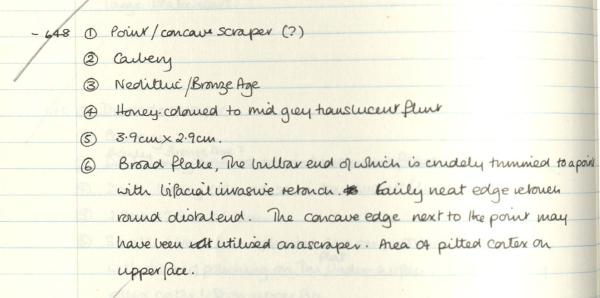 - 648 ① Point/concave scraper (?)
② Carbery
③ Neolithic/Bronze Age
④ Honey-coloured to mid grey translucent flint
⑤ 3.9cm x 2.9cm.
⑥ Broad flake, The bulbar end of which is crudely trimmed to a point
with bifacial invasive retouch. Fairly neat edge retouch
round distal end. The concave edge next to the point may
have been utilized as a scraper. Area of pitted cortex on
upper face.